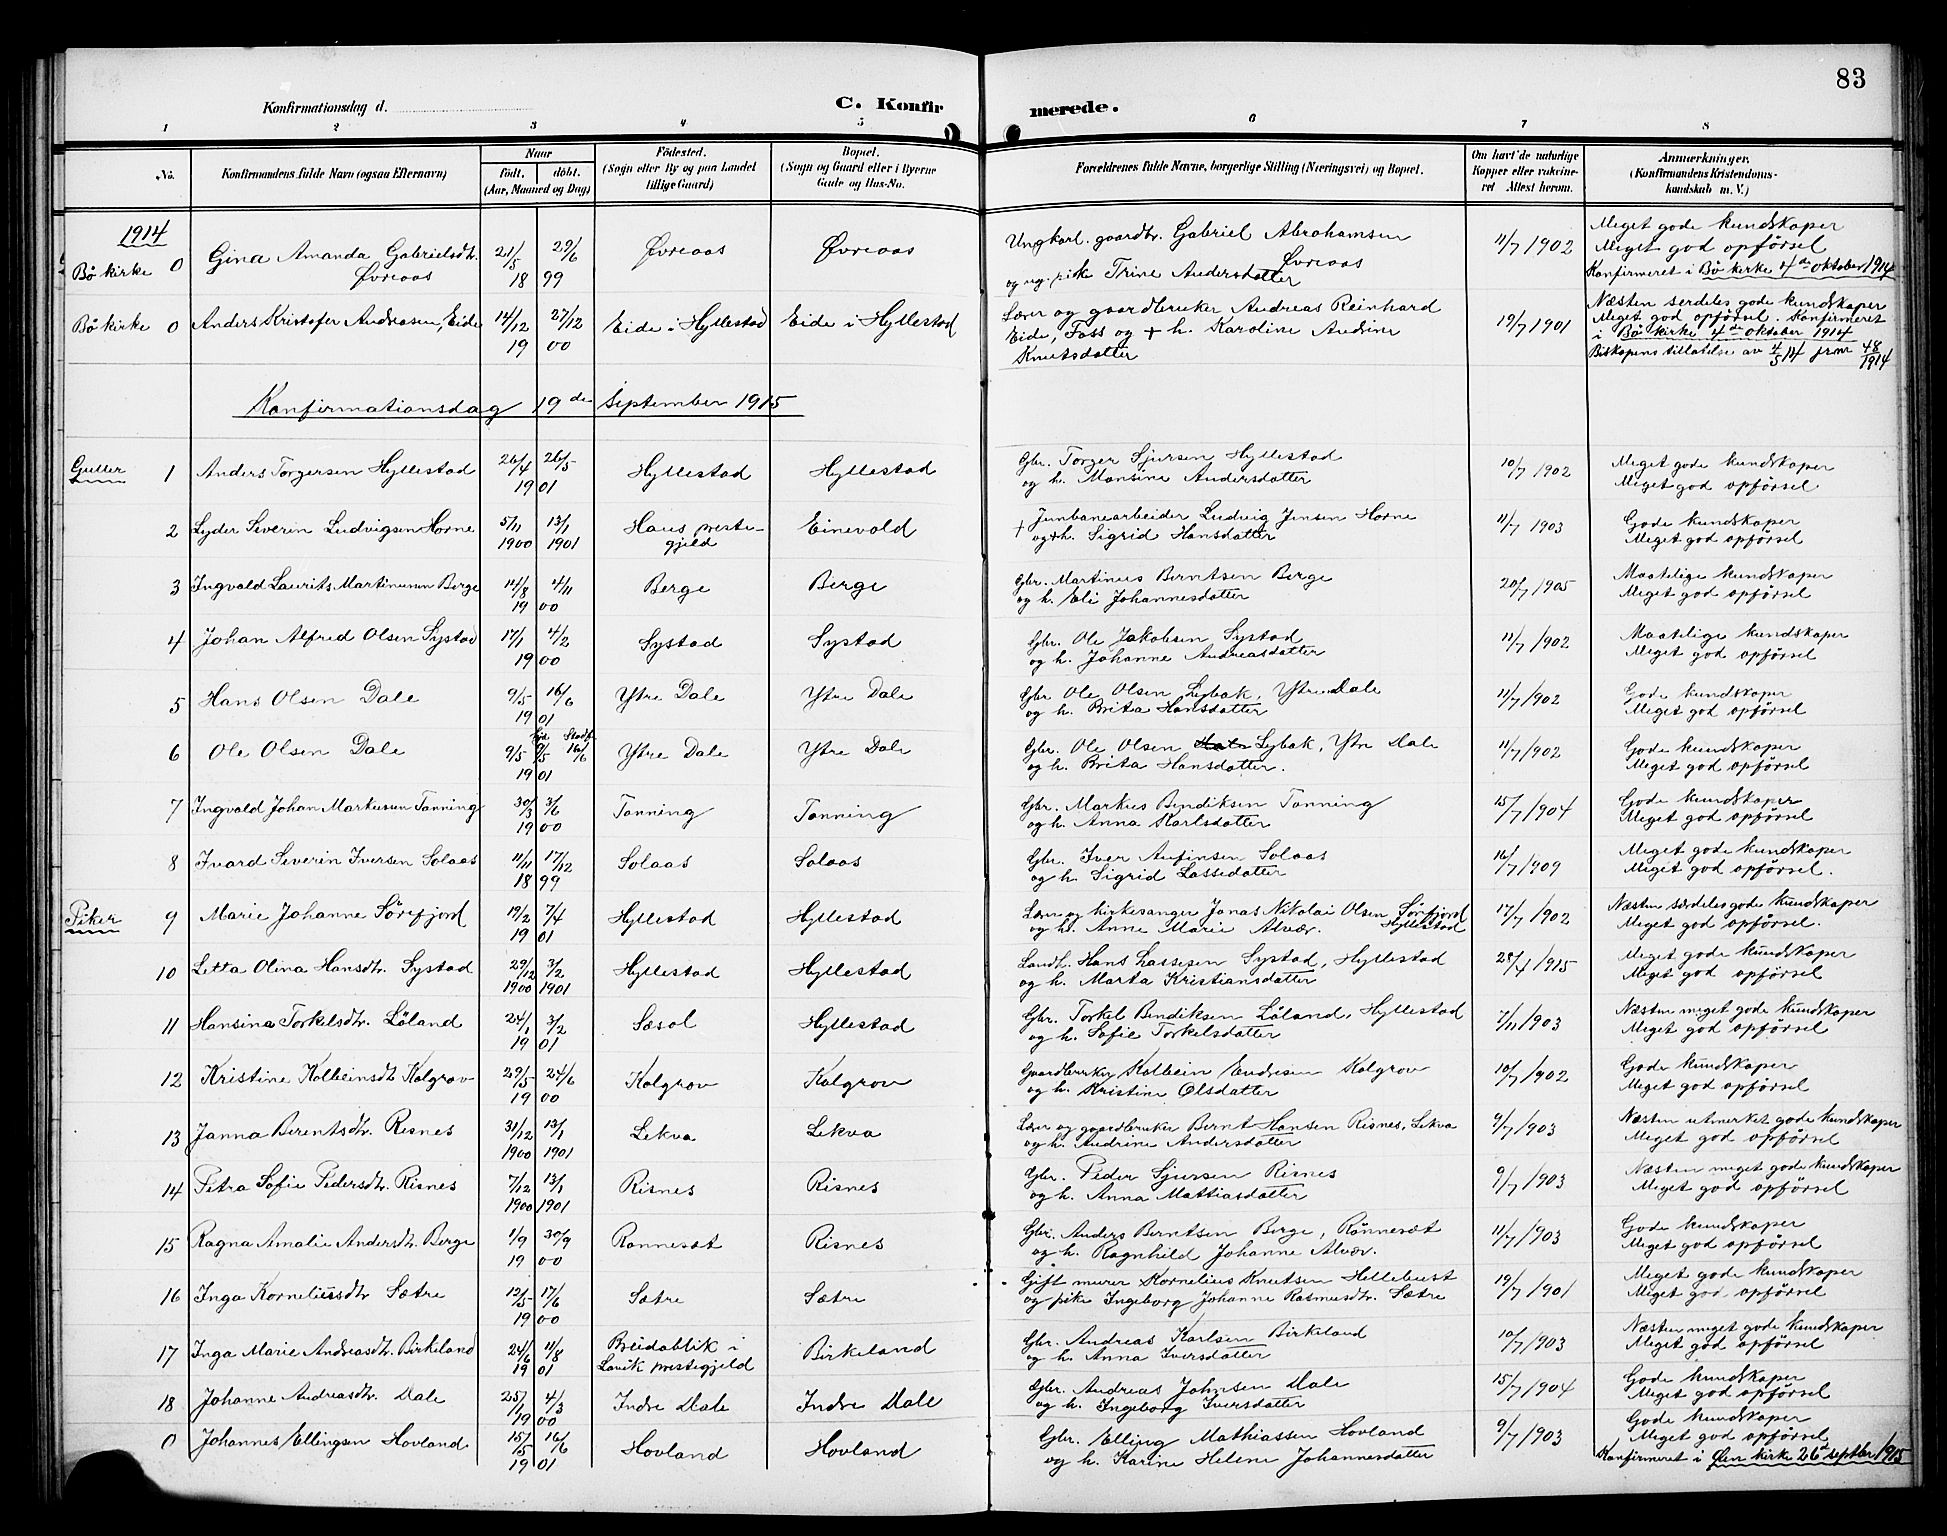 83
Konfirmationsdag d.
C. Konfirmerede.
1 2 3 4 5 6 7 8
No.
Konfirmandens fulde Navn (ogsaa Efternavn)
Naar
födt. döbt.
(Aar, Maaned og Dag)
Födested.
(Sogn eller By og paa Landet
tillige Gaard)
Bopæl.
(Sogn og Gaard eller i Byerne
Gade og Hus-No.
Forældrenes fulde Navne, borgerlige Stilling (Næringsvei) og Bopæl.
Om havt de naturlige
Kopper eller vakcine-
ret Attest herom.
Anmærkninger.
(Konfirmandens Kristendoms-
kundskab m. V.)
1914
Bö kirke 0 Gina Amanda Gabrielsdtr. Øvreaas 21/5 29/6 1899 Øvreaas Øvreaas Ungkarl. gaardbr. Gabriel Abrahamsen Øvreaas og ug. pike Trine Andersdatter 11/7 1902 Meget gode kundskaper Meget god opförsel Konfirmeret i Bö kirke 4de oktober 1914
Bö kirke 0 Anders Kristofer Andreasen, Eide 14/12 27/12 1900 Eide i Hyllestad Eide i Hyllestad Lærer og gaardbruker Andreas Reinhard Eide, Foss og + h. Karoline Andrine Knutsdatter 19/7 1901 Næsten serdeles gode kundskaper Meget god opförsel. Konfirmeret i Bö kirke 4de oktober 1914 Biskopens tillatelse av 4/5 14 jrnr 48/1914
Konfirmationsdag 19de September 1915
Gutter 1 Anders Torgersen Hyllestad 26/4 26/5 1901 Hyllestad Hyllestad Gbr. Torger Sjursen Hyllestad og h. Mansine Andersdatter 10/7 1902 Meget gode kundskaper Meget god opförsel
2 Lyder Severin Ludvigsen Horne 5/11 1900 13/1 1901 Haus prestegjeld Einevold + Jernbanearbeider Ludvig Jensen Horne og + h. Sigrid Hansdatter 11/7 1903 Gode kundskaper Meget god opförsel
3 Ingvald Laurits Martinusen Berge 12/8 4/11 1900 Berge Berge Gbr. Martinus Berntsen Berge og h. Eli Johannesdatter 20/7 1905 Maatelige kundskaper Meget god opförsel
4 Johan Alfred Olsen Systad 17/1 4/2 1900 Systad Systad Gbr. Ole Jakobsen Systad og h. Johanne Andreasdatter 11/7 1902 Maatelige kundskaper Meget god opförsel
5 Hans Olsen Dale 9/5 16/6 1901 Ytre Dale Ytre Dale Gbr Ole Olsen Lybak, Ytre Dale og h. Brita Hansdatter 11/7 1902 Gode kundskaper Meget god opförsel
6 Ole Olsen Dale 9/5 9/5 16/6 1901 Ytre Dale Ytre Dale Gbr. Ole Olsen Lybak, Ytre Dale og h. Brita Hansdatter. 11/7 1902 Gode kundskaper Meget god opförsel
7 Ingvald Johan Markusen Tonning 30/3 3/6 1900 Tonning Tonning Gbr. Markus Bendiksen Tonning og h. Anna Karlsdatter 15/7 1904 Gode kundskaper Meget god opförsel
8 Ivard Severin Iversen Solaas 11/11 17/12 1899 Solaas Solaas Gbr. Iver Anfinsen Solaas og h. Sigrid Lassedatter 16/7 1909 Meget gode kundskaper Meget god opförsel.
Piker 9 Marie Johanne Sörefjord 19/2 7/4 1901 Hyllestad Hyllestad Lærer og kirkesanger Jonas Nikolai Olsen Sörefjord og h. Anne Marie Alvær. Hyllestad 17/7 1902 Næsten særdeles gode kundskaper Meget god opförsel.
10 Letta Olina Hansdtr. Systad 29/12 1900 3/2 1901 Hyllestad Hyllestad Landh. Hans Lassesen Systad, Hyllestad og h. Marta Kristiansdatter 28/4 1915 Meget gode kundskaper Meget god opförsel
11 Hansina Torkelsdtr. Löland 24/1 3/2 1901 Sæsol Hyllestad Gbr. Torkel Bendiksen Löland, Hyllestad og h. Sofie Torkelsdatter 7/11 1903 Næsten meget gode kundskaper Meget god opförsel
12 Kristine Kolbeinsdtr Kolgrov 29/5 24/6 1900 Kolgrov Kolgrov Gaardbruker Kolbein Endresen Kolgrov og h. Kristine Olsdatter 10/7 1902 Gode kundskaper Meget god opförsel
13 Janna Berentsdtr. Risnes 31/12 1900 13/1 1901 Lekva Lekva Lærer og gaardbruker Bernt Hansen Risnes, Lekva og h. Andrine Andersdatter 9/7 1903 Næsten utmerket gode kundskaper Meget god opförsel
14 Petra Sofie Pedersdtr. Risnes 7/12 1900 13/1 1901 Risnes Risnes Gbr. Peder Sjursen Risnes og h. Anna Mattiasdatter 9/7 1903 Næsten meget gode kundskaper Meget god opförsel
15 Ragna Amalie Andersdtr. Berge 1/9 30/9 1900 Rønnesæt Risnes Gbr. Anders Berntsen Berge, Rönnesæt og h. Ragnhild Johanne Alvær. 11/7 1903 Gode kundskaper Meget god opförsel
16 Inga Korneliusdtr Sætre 12/5 17/6 1900 Sætre Sætre Gift murer Kornelius Knutsen Hellebust og pike Ingeborg Johanne Rasmusdtr. Sætre 19/7 1901 Meget gode kundskaper Meget god opförsel
17 Inga Marie Andreasdtr. Birkeland 24/6 11/8 1901 Breidablik i Lavik prestegjeld Birkeland Gbr. Andreas Karlsen Birkeland og h. Anna Iversdatter 10/7 1903 Næsten meget gode kundskaper Meget god opförsel
18 Johanne Andreasdtr. Dale 25/1 4/3 1900 Indre Dale Indre Dale Gbr. Andreas Johnsen Dale og h. Ingeborg Iversdatter 15/7 1904 Gode kundskaper Meget god opförsel
0 Johannes Ellingsen Hovland 15/5 16/6 1901 Hovland Hovland Gbr. Elling Mathiassen Hovland og h. Karine Helene Johannesdatter 9/7 1903 Gode kundskaper Meget god opförsel Konfirmeret i Øen kirke 26d septbr 1915